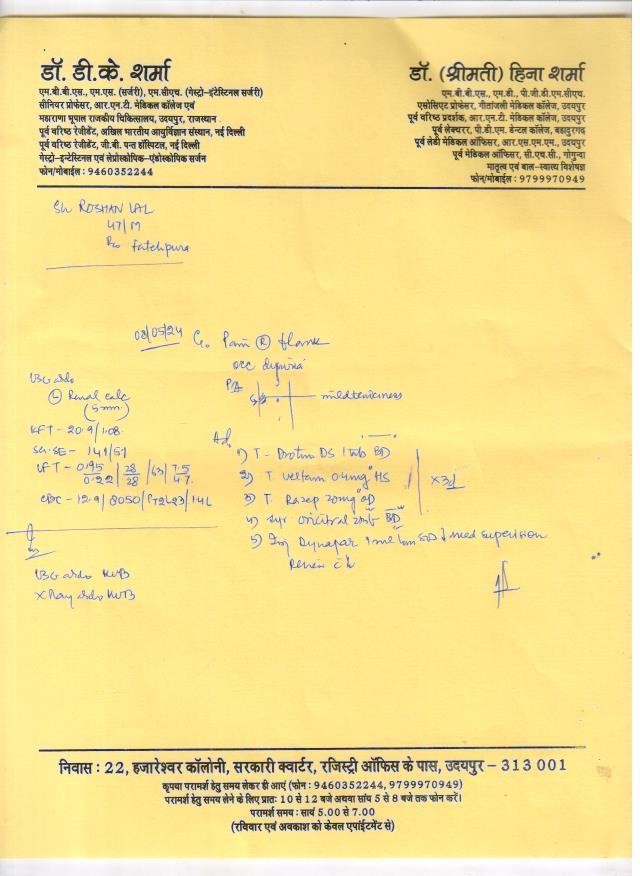 डॉ. डी.के. शर्मा
एम.बी.बी.एस., एम.एस. (सर्जरी), एम.सीएच. (गेस्ट्रो-इंटेस्टिनल सर्जरी)
सीनियर प्रोफेसर, आर.एन.टी. मेडिकल कॉलेज एवं
महाराणा भूपाल राजकीय चिकित्सालय, उदयपुर, राजस्थान
पूर्व वरिष्ठ रेजीडेंट, अखिल भारतीय आयुर्विज्ञान संस्थान, नई दिल्ली
पूर्व वरिष्ठ रेजीडेंट, जी.बी. पन्त हॉस्पिटल, नई दिल्ली
गेस्ट्रो-इन्टेस्टिनल एवं लेप्रोस्कोपिक-एंडोस्कोपिक सर्जन
फोन/मोबाईल : 9460352244
डॉ. (श्रीमती) हिना शर्मा
एम.बी.बी.एस., एम.डी., पी.जी.डी.एम.सीएच.
एसोसिएट प्रोफेसर, गीतांजली मेडिकल कॉलेज, उदयपुर
पूर्व वरिष्ठ प्रदर्शक, आर.एन.टी. मेडिकल कॉलेज, उदयपुर
पूर्व लेक्चरर, पी.डी.एम. डेन्टल कॉलेज, बहादुरगढ़
पूर्व लेडी मेडिकल ऑफिसर, आर.एस.एम.एम., उदयपुर
पूर्व मेडिकल ऑफिसर, सी.एच.सी., गोगुन्दा
मातृत्व एवं बाल-स्वास्थ्य विशेषज्ञ
फोन/मोबाईल : 9799970949
Sh ROSHAN LAL
47/M
R/o fatehpura
08/05/24 C/o Pain Ⓡ flank
occ dysuria
USG abdo
Ⓛ Renal calc
(5mm)
P/A
mild tenderness
KFT - 20.9/1.08
Sr. SE - 141/51
LFT - 0.95/0.22 28/28 /63/ 7.5/4.7
CBC - 12.9/8050/
Adv
1) T - DS 1 tab BD
2) T. 0.4mg HS
3) T. Razep 20mg OD
4) Syr BD
x3d
5) Inj Dynapar 1ml Im med supervision
Review
USG abdo KUB
X Ray abdo KUB
निवास : 22, हजारेश्वर कॉलोनी, सरकारी क्वार्टर, रजिस्ट्री ऑफिस के पास, उदयपुर – 313 001
कृपया परामर्श हेतु समय लेकर ही आएं (फोन : 9460352244, 9799970949)
परामर्श हेतु समय लेने के लिए प्रातः 10 से 12 बजे अथवा सांय 5 से 8 बजे तक फोन करें।
परामर्श समय : सायं 5.00 से 7.00
(रविवार एवं अवकाश को केवल एपॉइंटमेंट से)